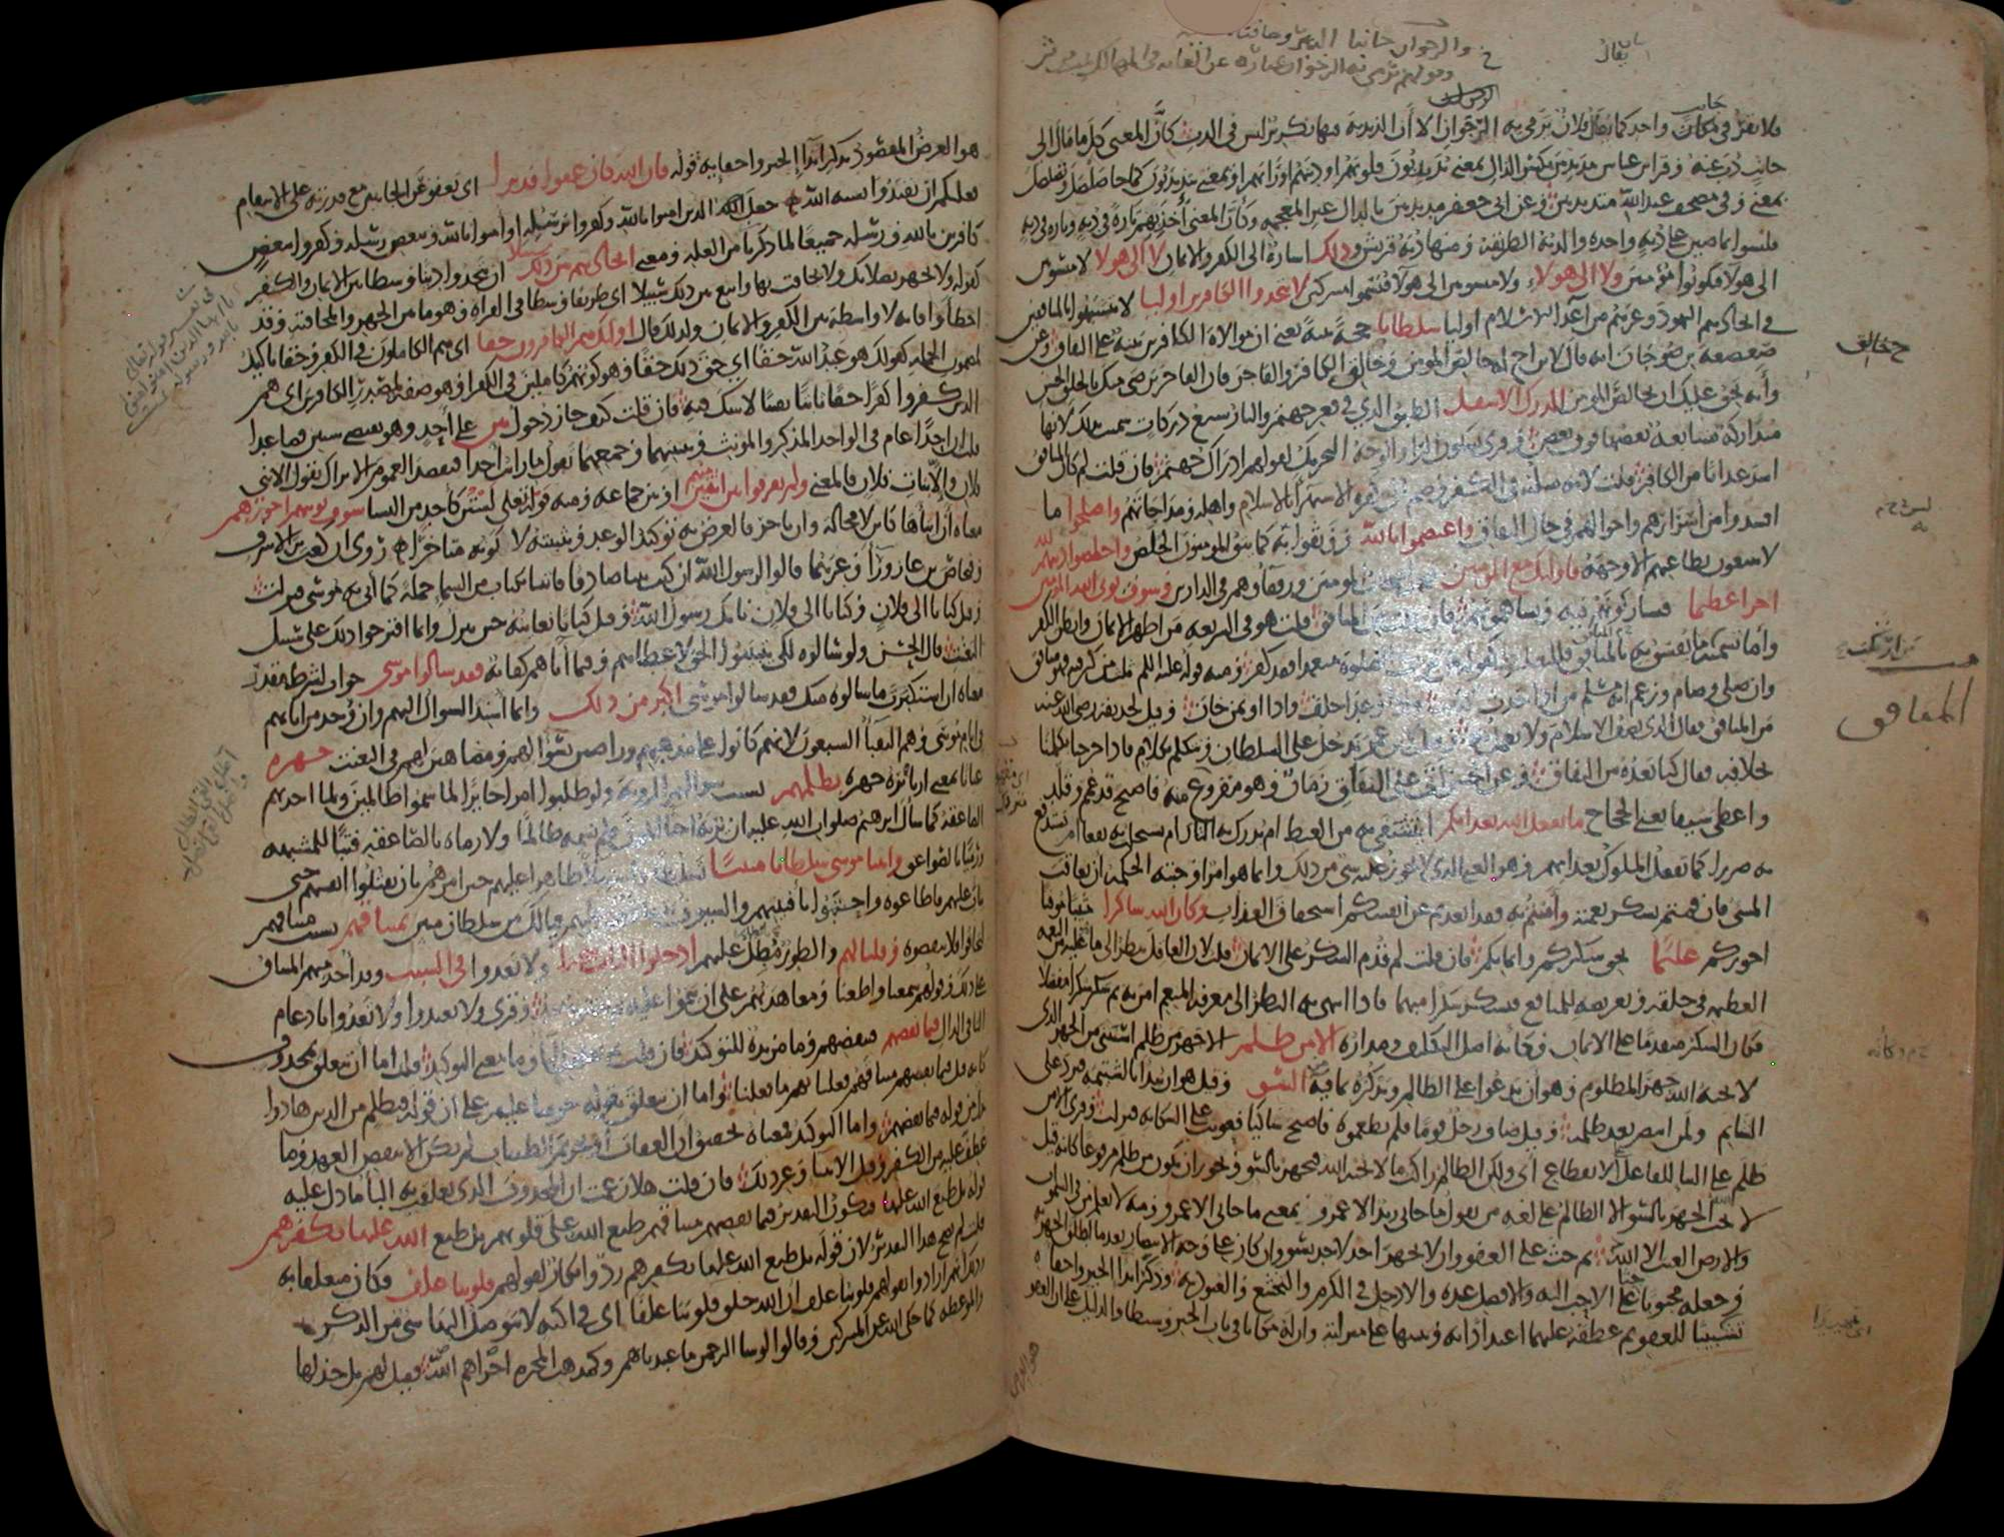 فلا يقر في جانب واحد كما يقال فلان يرمى به الرجوان الا أن الذبذبة فيها تكرير ليس في الذب كأن المعنى كلما مال الى
جانب ذب عنه وقرا ابن عباس مذبذبين بكسر الذال بمعنى يذبذبون قلوبهم او دينهم او رأيهم او بمعنى يتذبذبون كما جا صلصل وتصلصل
بمعنى وفي مصحف عبد الله متذبذبين وعن ابى جعفر مدبدبين بالدال غير المعجمه وكأن المعنى أخذ بهم تارة في دبة وتارة في دبة
فليسوا بماضين على دبة واحده والدبة الطريقة ومنها دبة قريش وذلك اشارة الى الكفر والايمان لا الى هولا لا منسوبين
الى هولا فيكونوا مؤمنين ولا الى هولاء ولا منسوبين الى هولا فيسموا مشركين لا تتخذوا الكافرين اوليا لا تتشبهوا بالمنافقين
في اتخاذهم اليهود وغيرهم من أعداء الاسلام اوليا سلطانا حجة بينة يعنى ان موالاة الكافرين بينة على النفاق وعن
صعصعة بن صوحان انه قال لابن اخ له خالص المومن وخالق الكافر والفاجر فان الفاجر يرضى منك بالخلق الحسن
وأنه يحق عليك ان تخالص المومن الدرك الاسفل الطبق الذي في قعر جهنم والنار سبع دركات سميت بذلك لانها
متداركة متتابعة بعضها فوق بعض وقرى بسكون الراء والوجه التحريك لقولهم ادراك جهنم فان قلت لم كان المنافق
اشد عذابا من الكافر قلت لانه مثله في الكفر وضم الى كفره الاستهزاء بالاسلام واهله ومداجاتهم واصلحوا ما
افسدوا من أسرارهم واحوالهم في حال النفاق واعتصموا بالله ووثقوا به كما يثق المومنون الخلص واخلصوا دينهم لله
لا يبتغون بطاعتهم الا وجهه فاولئك مع المومنين فهم اصحاب المومنين ورفقاؤهم في الدارين وسوف يوت الله المومنين
اجرا عظيما فيشاركونهم فيه ويساهمونهم فان قلت من المنافق قلت هو في الشريعه من اظهر الايمان وابطن الكفر
وأما تسمية من ارتكب ما يفسق به بالمنافق فللتغليظ كقوله من ترك الصلوة متعمدا فقد كفر ومنه قوله عليه السلم ثلث من كن فيه فهو منافق
وان صلى وصام وزعم انه مسلم من اذا حدث كذب واذا وعد اخلف واذا اوتمن خان وقيل لحذيفه رضى الله عنه
من المنافق فقال الذي يصف الاسلام ولا يعمل به وقيل لابن عمر ندخل على السلطان ونتكلم بكلام فاذا خرجنا تكلمنا
بخلافه فقال كنا نعده من النفاق وعن الحسن أتى على النفاق زمان وهو مقروع فيه فاصبح قد عمم وقلد
واعطى سيفا يعنى الحجاج ما يفعل الله بعذابكم أيتشفى به من الغيظ ام يدرك به الثار ام يستجلب به نفعا ام يستدفع
به ضررا كما يفعل الملوك بعذابهم وهو الغنى الذي لا يجوز عليه شي من ذلك وانما هو امر اوجبته الحكمة ان يعاقب
المسى فان قمتم بشكر نعمته وآمنتم به فقد ابعدتم عن انفسكم استحقاق العذاب وكان الله شاكرا مثيبا موفيا
اجوركم عليما بحق شكركم وايمانكم فان قلت لم قدم الشكر على الايمان قلت لان العاقل ينظر الى ما عليه من النعمه
العظيمه في خلقه وتعريضه للمنافع فيشكر شكرا مبهما فاذا انتهى به النظر الى معرفة المنعم امن به ثم شكر شكرا مفصلا
فكان الشكر متقدما على الايمان وكأنه اصل التكليف ومداره الا من ظلم الا جهر من ظلم استثنى من الجهر الذي
لا يحبه الله جهر المظلوم وهو أن يدعوا على الظالم ويذكره بما فيه من السو وقيل هو ان يبدا بالشتيمه فيرد على
الشاتم ولمن انتصر بعد ظلمه وقيل ضاف رجل قوما فلم يطعموه فاصبح شاكيا فعوتب على الشكايه فنزلت وقرى الا من
ظلم على البنا للفاعل للانقطاع اى ولكن الظالم راكب ما لا يحبه الله فيجهر بالسو ويجوز ان يكون من ظلم مرفوعا كانه قيل
لا يحب الله الجهر بالسو الا الظالم على لغه من يقول ما جانى زيد الا عمرو بمعنى ما جانى الا عمرو ومنه لا يعلم من في السموات
والارض الغيب الا الله ثم حث على العفو وان لا يجهر احد لاحد بسو وان كان على وجه الانتصار بعد ما اطلق الجهر به
وجعله محبوبا حثا على الاحب اليه والافضل عنده والادخل في الكرم والتخشع والعبوديه وذكر ابدا الخير واخفاه
تشبيبا للعفو ثم عطفه عليهما اعتدادا به وتنبيها على منزلته وان له مكانا في باب الخير وسيطا والدليل على ان العفو
هو الغرض المقصود بذكر ابدا الخير واخفايه قوله فان الله كان عفوا قديرا اى يعفو عن الجانين مع قدرته على الانتقام
فعليكم ان تقتدوا بسنه الله جعل الذين امنوا بالله وكفروا برسله او امنوا بالله وببعض رسله وكفروا ببعض
كافرين بالله ورسله جميعا لما ذكرنا من العلة ومعنى اتخاذهم بين ذلك سبيلا ان يتخذوا دينا وسطا بين الايمان والكفر
كقوله ولا تجهر بصلاتك ولا تخافت بها وابتغ بين ذلك سبيلا اى طريقا وسطا في القراة وهو ما بين الجهر والمخافتة وقد
اخطأوا فانه لا واسطة بين الكفر والايمان ولذلك قال اولئك هم الكافرون حقا اى هم الكاملون في الكفر وحقا تاكيد
لمضمون الجملة كقولك هو عبد الله حقا اى حق ذلك حقا وهو كونهم كاملين في الكفر او هو صفة لمصدر الكافرين اى هم
الذين كفروا كفرا حقا ثابتا يقينا لا شك فيه فان قلت كيف جاز دخول بين على أحد وهو يقتضي شيئين فصاعدا
قلت ان احدا عام في الواحد المذكر والمؤنث وتثنيتهما وجمعهما تقول ما رايت أحدا فتقصد العموم الا تراك تقول الا بنى
فلان والا بنات فلان فالمعنى ولم يفرقوا بين اثنين منهم او بين جماعه ومنه قوله تعالى لستن كأحد من النسا سوف يوتيهم اجورهم
معناه أن ايتاها كاين لا محالة وان تاخر فالغرض به توكيد الوعد وتثبيته لا كونه متاخرا روى ان كعب بن الاشرف
وفنحاص بن عازوراء وغيرهما قالوا لرسول الله ان كنت نبيا صادقا فاتنا بكتاب من السما جملة كما أتى به موسى فنزلت
وقيل كتابا الى فلان وكتابا الى فلان بانك رسول الله وقيل كتابا نعاينه حين ينزل وانما اقترحوا ذلك على سبيل
التعنت قال الحسن ولو سألوه لكى يتبينوا الحق لاعطاهم وفيما أتاهم كفاية فقد سالوا موسى جواب لشرط مقدر
معناه ان استكبرت ما سالوه منك فقد سالوا موسى اكبر من ذلك وانما أسند السوال اليهم وان وجد من ابائهم
في ايام موسى وهم النقبا السبعون لانهم كانوا على مذهبهم وراضين بسؤالهم ومضاهين لهم في التعنت جهرة
عيانا بمعنى ارناه نره جهرة بظلمهم بسبب سوالهم الرويه ولو طلبوا امرا جايزا لما سموا ظالمين ولما اخذتهم
الصاعقة كما سأل ابرهيم صلوات الله عليه ان يريه احيا الموتى فلم يسمه ظالما ولا رماه بالصاعقه فتبا للمشبهه
ورميا بالصواعق واتينا موسى سلطانا مبينا تسلطا واستيلا ظاهرا عليهم حين امرهم بان يقتلوا انفسهم حتى
يتاب عليهم فاطاعوه واحتبوا بأفنيتهم والسيوف تتساقط عليهم فيالك من سلطان مبين بميثاقهم بسبب ميثاقهم
ليخافوا فلا ينقضوه وقلنا لهم والطور مطل عليهم ادخلوا الباب سجدا ولا تعدوا في السبت وقد اخذ منهم الميثاق
على ذلك وقولهم سمعنا واطعنا ومعاهدتهم على ان يتموا عليه وقرى ولا تعتدوا ولا تعدوا بادغام
التا في الدال فبما نقضهم فبنقضهم وما مزيدة للتوكيد فان قلت بم تعلقت البا وما معنى التوكيد قلت اما أن يتعلق بمحذوف
كانه قيل فبما نقضهم ميثاقهم فعلنا بهم ما فعلنا واما ان يتعلق بقوله حرمنا عليهم على ان قوله فبظلم من الذين هادوا
بدل من قوله فبما نقضهم واما التوكيد فمعناه تحقيق ان العقاب أو تحريم الطيبات لم يكن الا بنقض العهد وما
عطف عليه من الكفر وقتل الانبيا وغير ذلك فان قلت هلا زعمت ان المحذوف الذي تعلقت به البا ما دل عليه
قوله بل طبع الله عليها فيكون التقدير فبما نقضهم ميثاقهم طبع الله على قلوبهم بل طبع الله عليها بكفرهم
قلت لم يصح هذا التقدير لان قوله بل طبع الله عليها بكفرهم رد وانكار لقولهم قلوبنا غلف فكان متعلقا به
وذلك أنهم ارادوا بقولهم قلوبنا غلف أن الله خلق قلوبنا غلفا اى في اكنة لا يتوصل اليها شى من الذكر
والموعظه كما حكى الله عن المشركين وقالوا لو شا الرحمن ما عبدناهم وكمذهب المجبره اخزاهم الله فقيل لهم بل خذلها